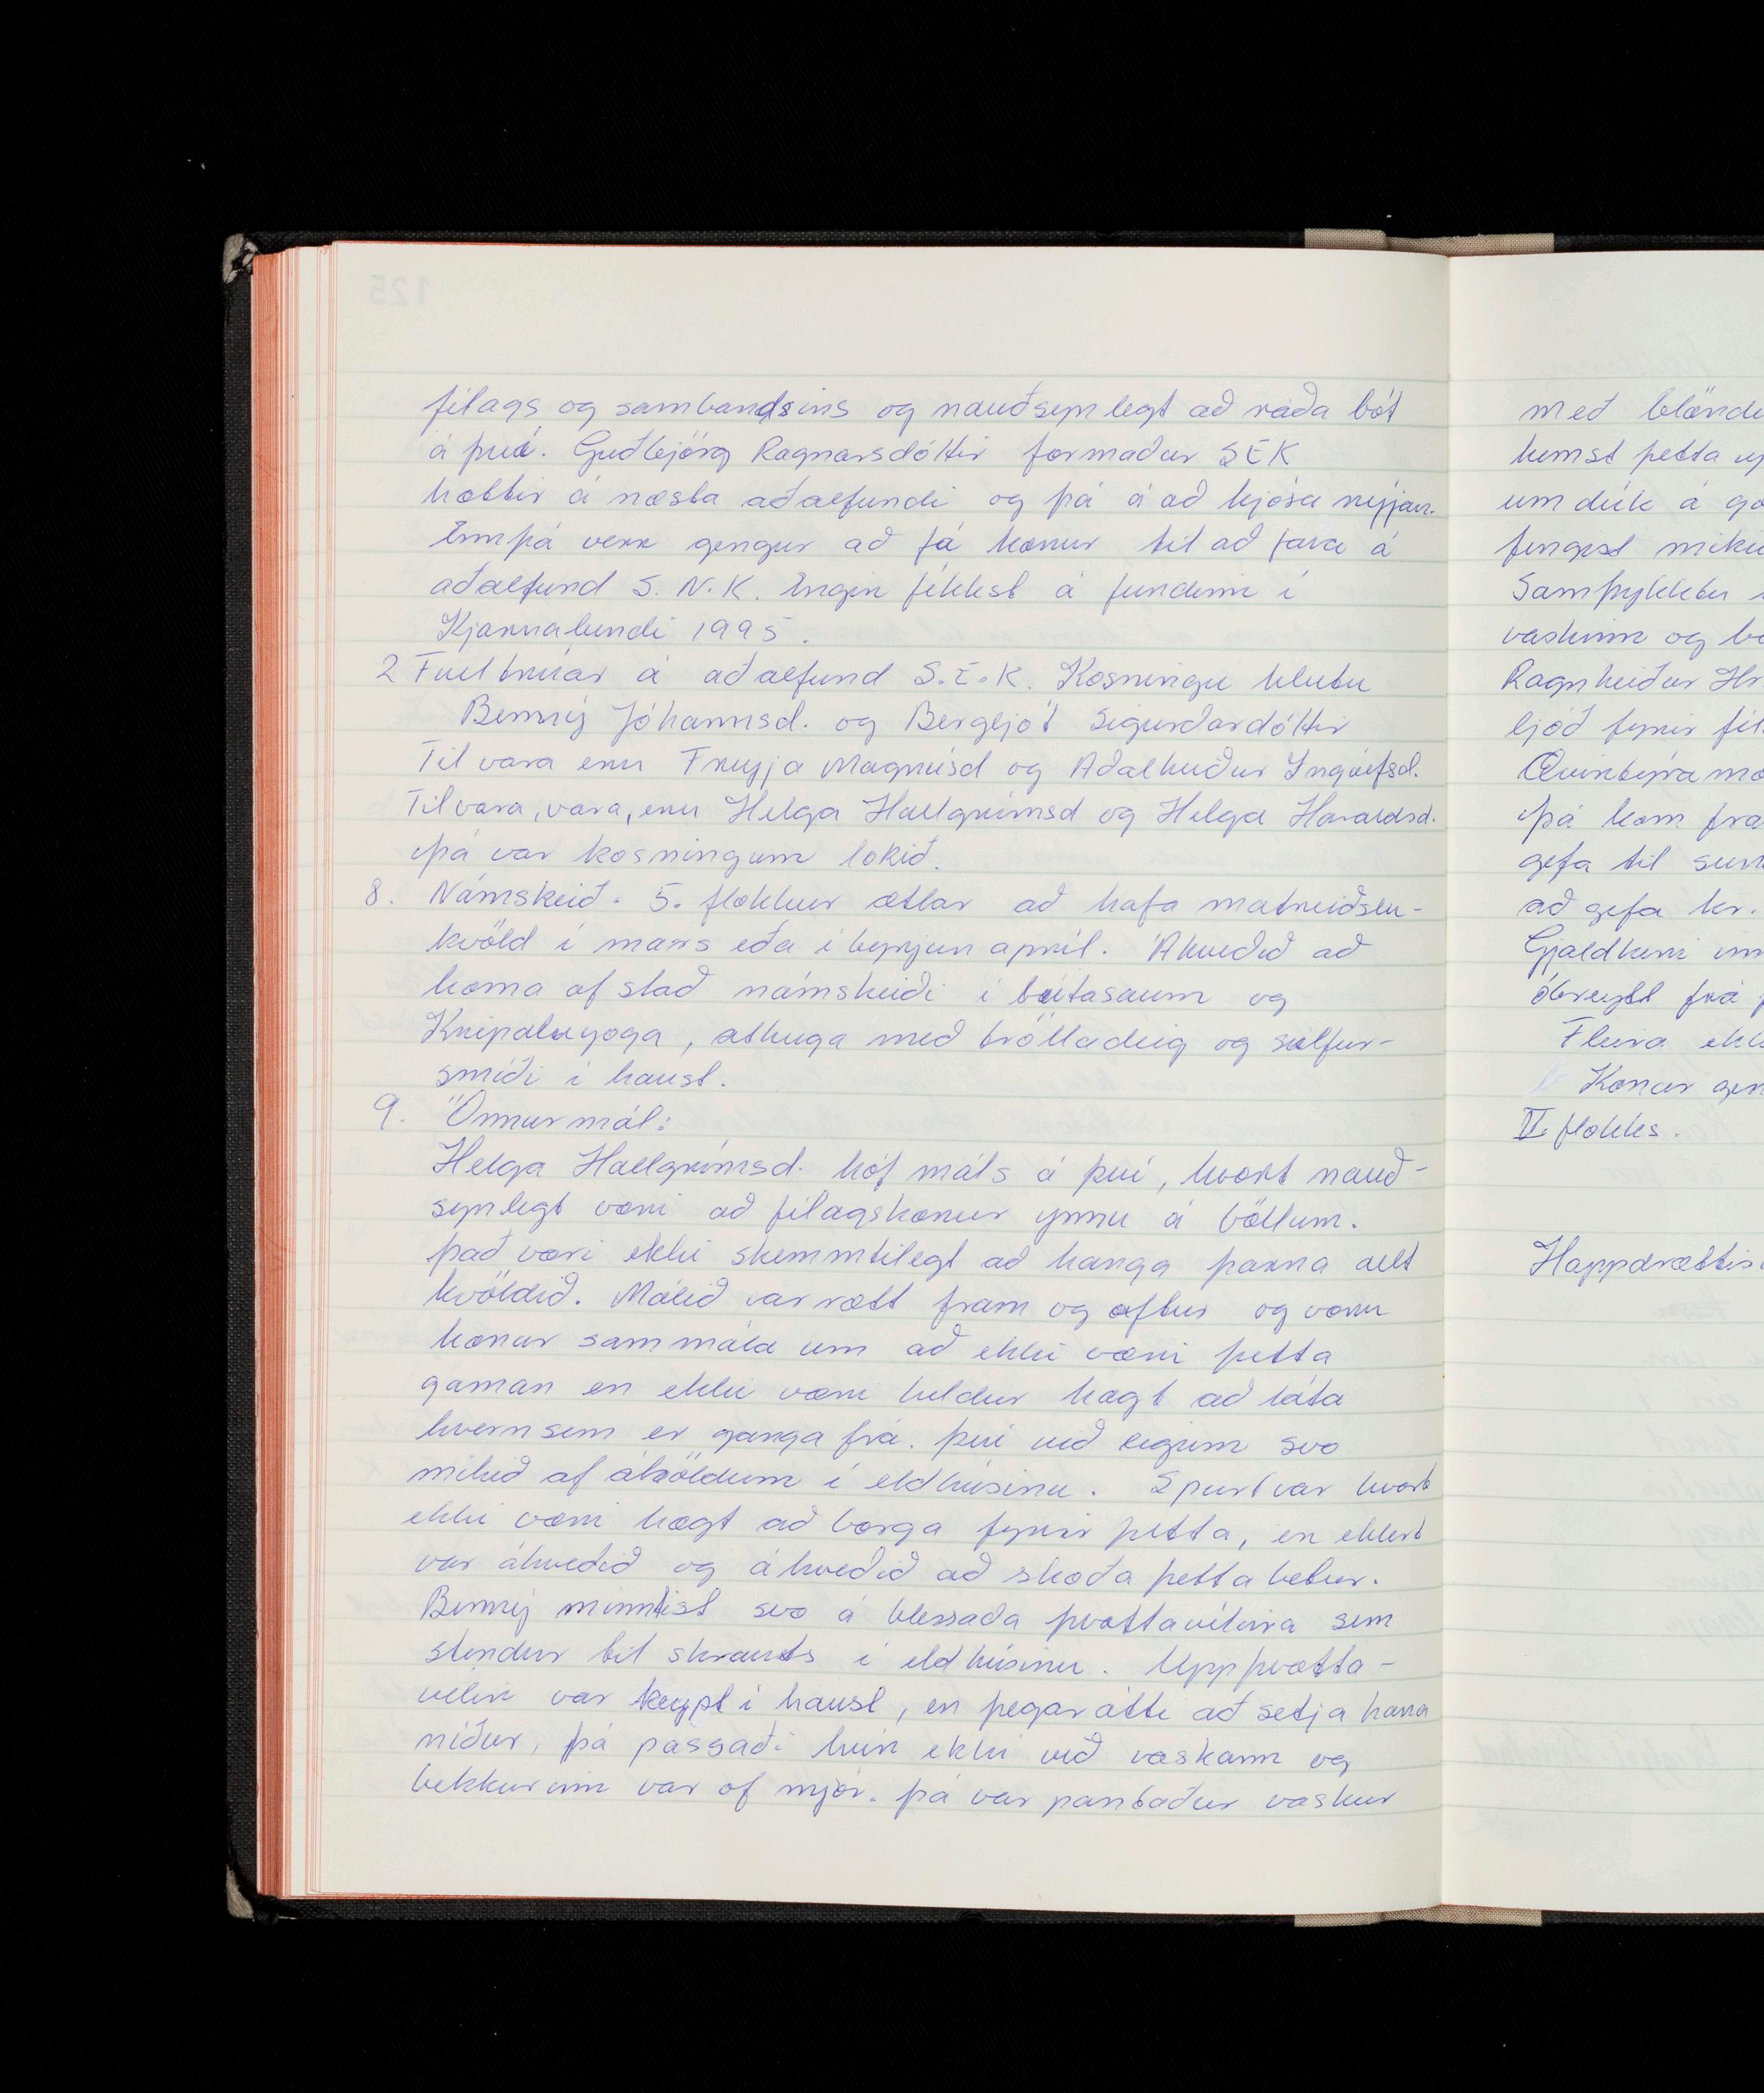 félags og sambandsins og nauðsynlegt að ráða bót
á því. Guðbjörg Ragnarsdóttir formaður SEK
hættir á næsta aðalfundi og þá á að kjósa nýjan.
Ennþá verr gengur að fá konur til að fara á
aðalfund S.N.K. Engin fékkst á fundinn í
Kjarnalundi 1995.
2 Fulltrúar á aðalfund S.E.K. Kosningu hlutu
Benný Jóhannsd. og Bergljót Sigurðardóttir
Til vara eru Freyja Magnúsd og Aðalheiður Ingólfsd.
Til vara, vara, eru Helga Hallgrímsd og Helga Haraldsd.
þá var kosningum lokið.
8. Námskeið. 5. flokkur ætlar að hafa matreiðslu-
kvöld í mars eða í byrjun apríl. Ákveðið að
koma af stað námskeiði í bútasaum og
Kripaluyoga, athuga með trölladeig og silfur-
smíði í haust.
9. Önnur mál:
Helga Hallgrímsd. hóf máls á því, hvort nauð-
synlegt væri að félagskonur ynnu á böllum.
það væri ekki skemmtilegt að hanga þarna allt
kvöldið. Málið var rætt fram og aftur og voru
konur sammála um að ekki væri þetta
gaman en ekki væri heldur hægt að láta
hvern sem er ganga frá. því við eigum svo
mikið af áhöldum í eldhúsinu. Spurt var hvort
ekki væri hægt að borga fyrir þetta, en ekkert
var ákveðið og ákveðið að skoða þetta betur.
Benný minntist svo á blessaða þvottavélina sem
stendur til skrauts í eldhúsinu. Uppþvotta-
vélin var keypt í haust, en þegar átti að setja hana
niður, þá passaði hún ekki við vaskann og
bekkurinn var of mjór. þá var pantaður vaskur
með
kemst þetta
um dúk á
fengist
Samþykktu
vaskinn og
Ragnheiður
ljóð fyrir
þá kom
gefa til
að gefa kr.
Gjaldkeri
óbreytt frá
Fleira
Konur
II. flokks.
125